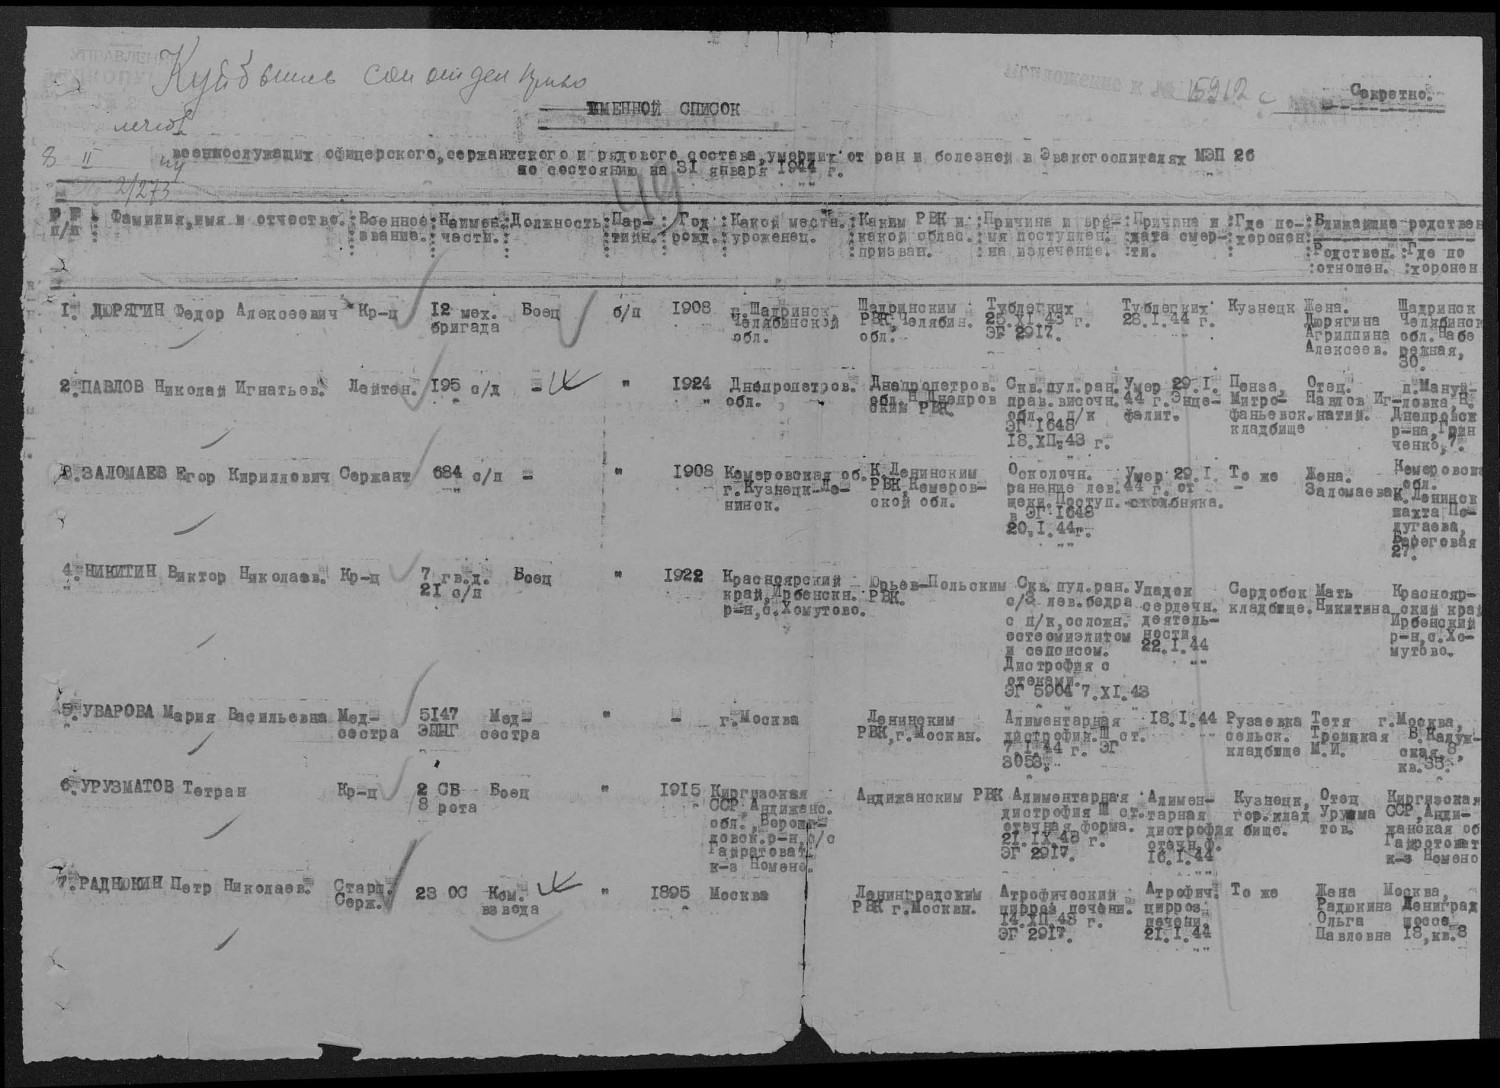 УПРАВЛЕНИ
Куйбышев
Приложение к № 15912 с
Секретно.
ИМЕННОЙ СПИСОК
8 II
военнослужащих офицерского, сержантского и рядового состава, умерших от ран и болезней в Эвакогоспиталях МЭП 26
по состоянию на 31 января 1944 г.
2/273
49
№№ п/п : Фамилия, имя и отчество. : Военное звание. : Наимен. части. : Должность : Партийн. : Год рожд. : Какой местн. уроженец. : Каким РВК и какой облас. призван. : Причина и время поступлен. на излечение. : Причина и дата смерти. : Где похоронен : Ближайшие родствен
Родствен. отношен. : Где по хоронен
1. ДЮРЯГИН Федор Алексеевич Кр-ц 12 мех. Боец б/п 1908 г. Шадринск, Шадринским Туберлегких Туберлегких Кузнецк Жена. Шадринск
бригада Челябинской РВК, Челябин. 25.XI.43 г. 28.I.44 г. Дюрягина Челябинск
обл. обл. ЭГ 2917. Агриппина обл. Набе
Алексеев. режная,
30.
2. ПАВЛОВ Николай Игнатьев. Лейтен. 195 с/д - " 1924 Днепропетров. Днепропетров. Скв. пул. ран. Умер 29.I. Пенза, Отец. п. Мануй-
обл. обл. Н. Днепров прав. височн. 44 г. Энце- Митро- Павлов Иг- ловка, Н.
ским РВК. обл. с п/к фалит. фаньевск. натий. Днепровск
ЭГ 1648 кладбище р-на, Грин
18.XП.43 г. ченко, 7.
3. ЗАЛОМАЕВ Егор Кириллович Сержант 684 с/п - " 1908 Кемеровская об. К. Ленинским Осколочн. Умер 29.I. То же Жена. Кемеровска
г. Кузнецк-Ле- РВК, Кемеров- ранение лев. 44 г. от - Заломаева обл.
нинск. ской обл. щеки. Поступ. столбняка. К. Ленинск
в ЭГ 1648 шахта По-
20.I.44г. лугаева,
Береговая
27.
4. НИКИТИН Виктор Николаев. Кр-ц 7 гв.д. Боец " 1922 Красноярский Юрьев-Польским Скв. пул. ран. Упадок Сердобск Мать Краснояр-
21 с/п край, Ирбенскн. РВК. с/3 лев. бедра сердечн. кладбище. Никитина ский край
р-н, с. Хомутово. с п/к, осложн. деятель- Ирбенский
остеомиэлитом ности. р-н, с. Хо-
и сепсисом. 22.I.44 мутово.
Дистрофия с
отеками.
ЭГ 5904 7.XI.43
5. УВАРОВА Мария Васильевна Мед- 5147 Мед- " - г. Москва Ленинским Алиментарная 18.I.44 Рузаевка Тетя г. Москва,
сестра ЭППГ сестра РВК, г. Москвы. дистрофия Ш ст. сельск. Троицкая Б. Калуж-
7.I.44 г. ЭГ кладбище М.И. ская 8,
3053. кв. 33.
6. УРУЗМАТОВ Тетран Кр-ц 2 СБ Боец " 1915 Киргизская Андижанским РВК Алиментарная Алимен- Кузнецк, Отец Киргизская
8 рота ССР, Андижанс. дистрофия Ш ст. тарная гор. клад Урузма ССР, Анди-
обл., Ворошил- отечная форма. дистрофия бище. тов. жанская об
довск. р-н, с/с 21.IX.43 г. отечн. ф. Гайротоват
Гайратоват, ЭГ 2917. 16.I.44 к-з Номено
к-з Номено.
7. РАДЮКИН Петр Николаев. Старш. 23 ОС Ком. " 1895 Москва Ленинградским Атрофический Атрофич. То же Жена Москва,
Серж. взвода РВК г. Москвы. цирроз печени. цирроз Радюкина Ленинград
14.XП.43 г. печени. Ольга шоссе
ЭГ 2917. 21.I.44 Павловна 18, кв. 8